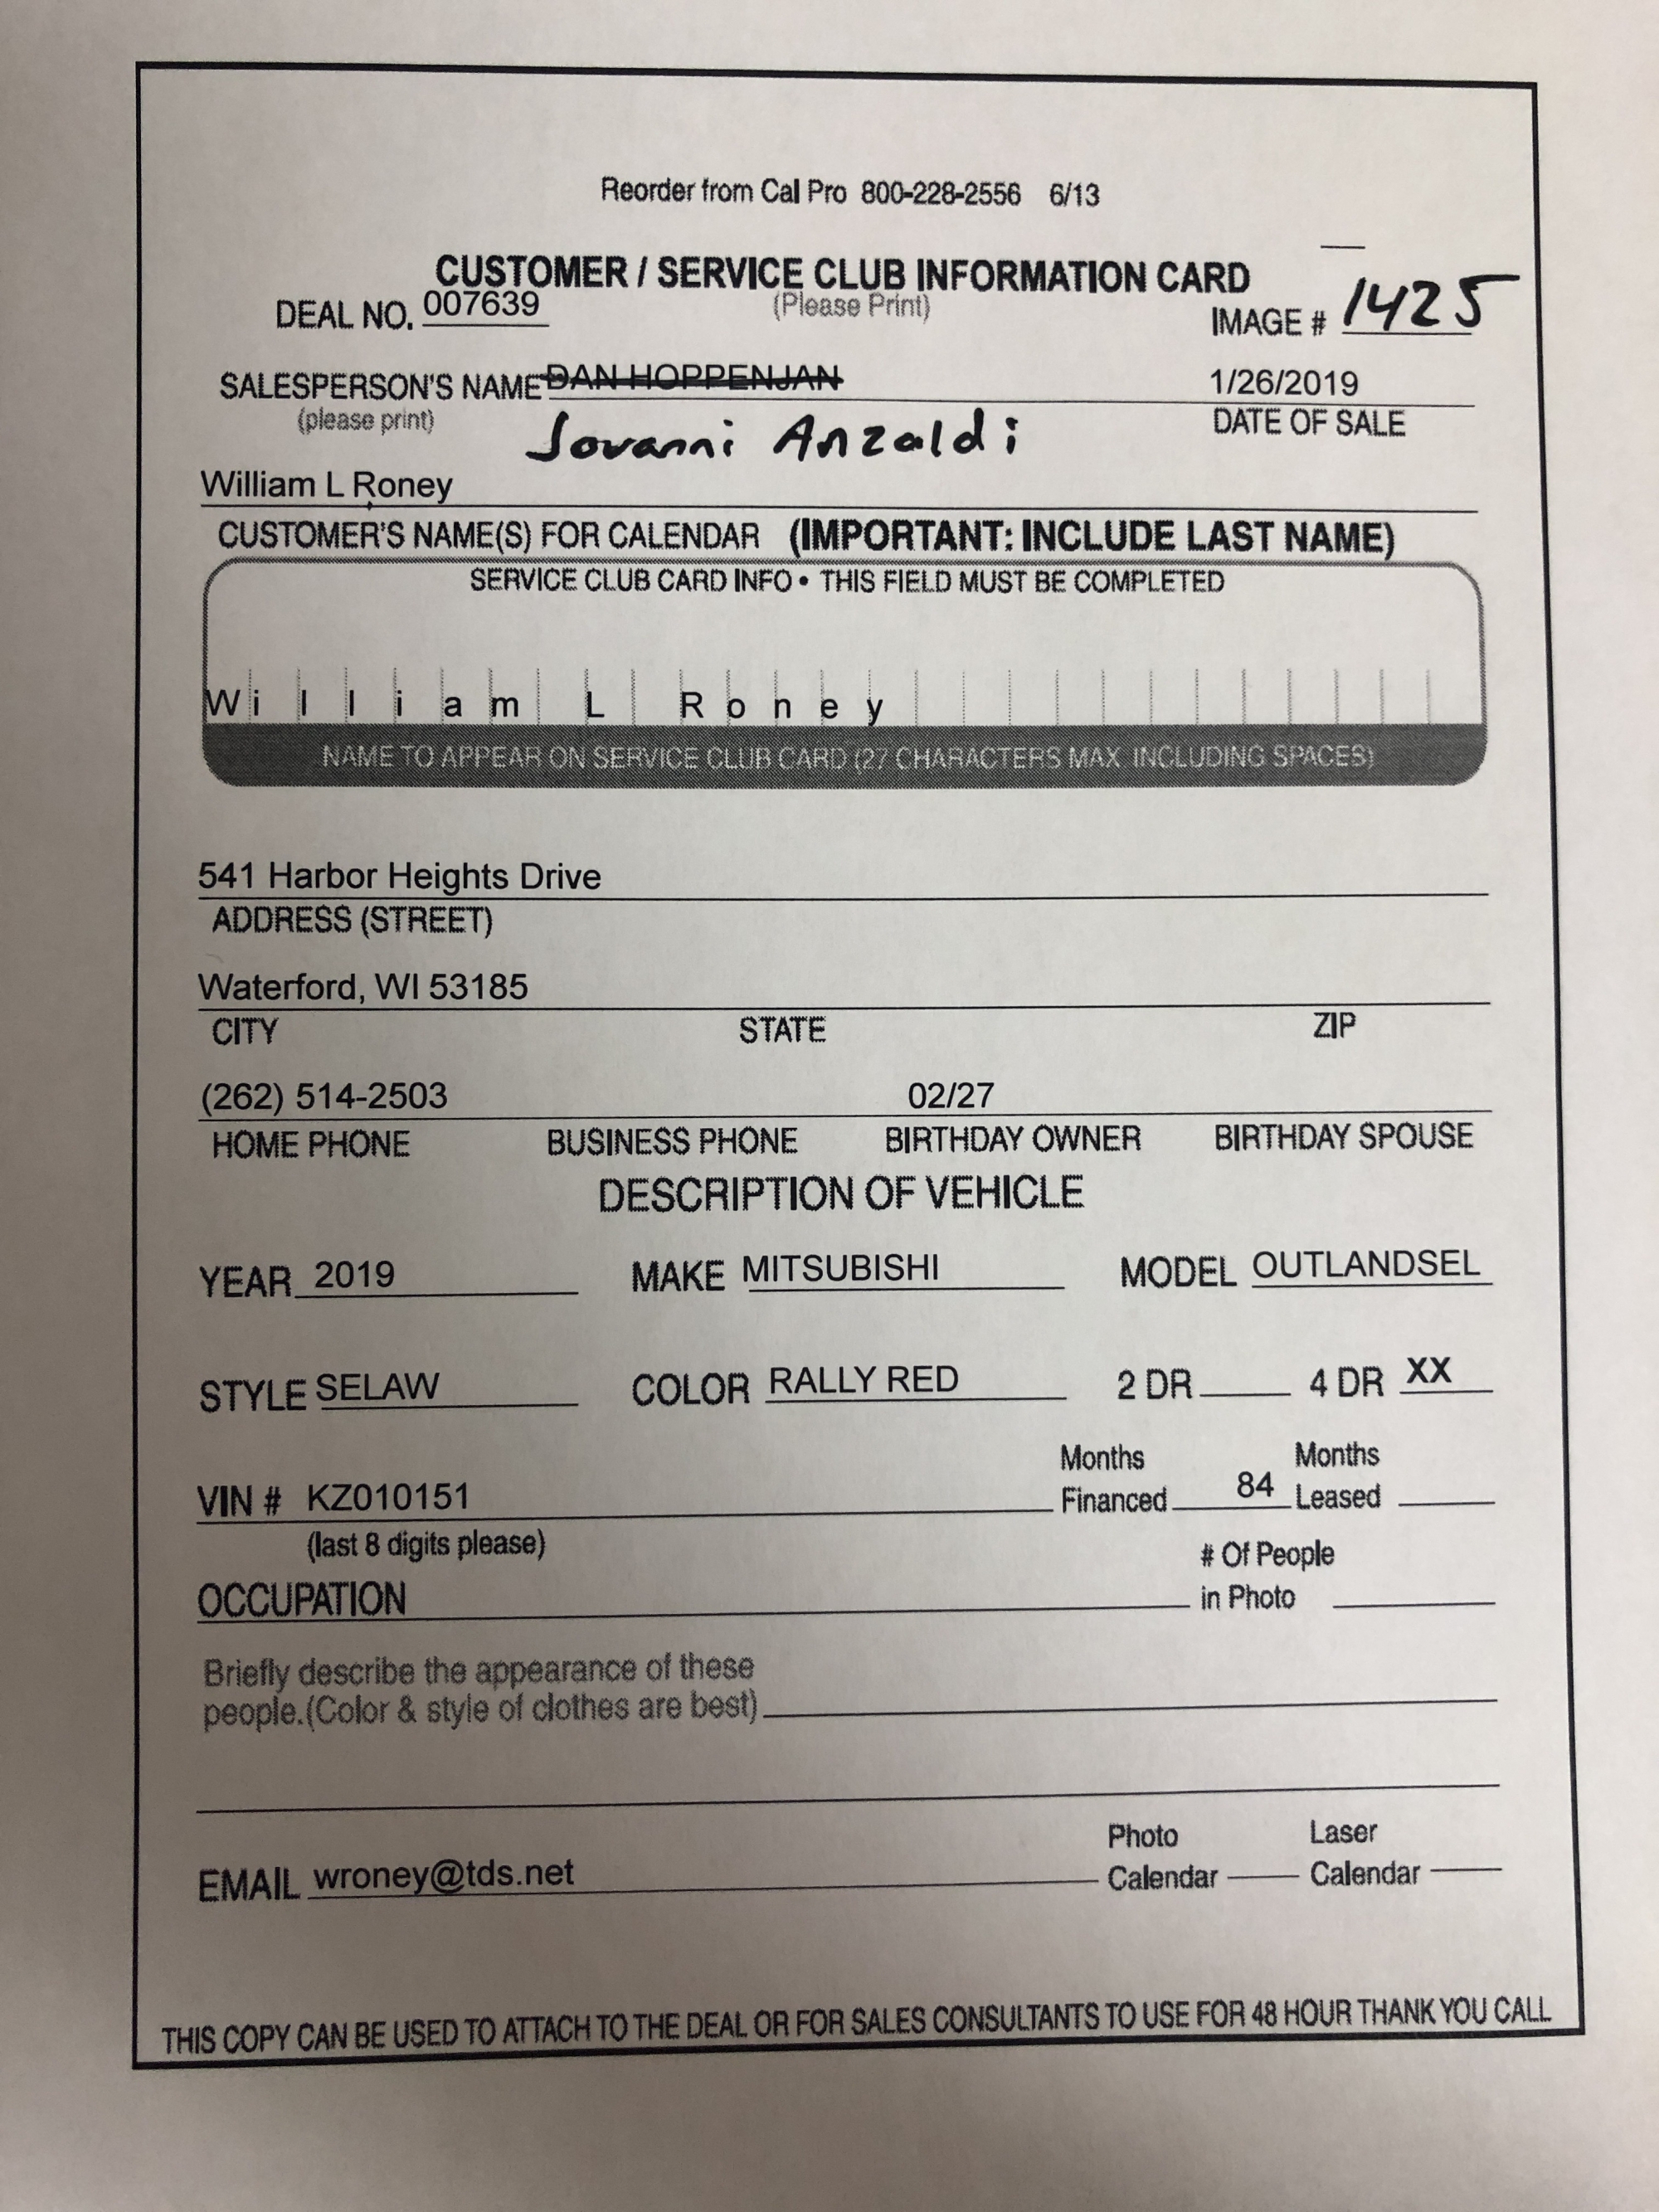 Reorder from Cal Pro 800-228-2556 6/13
CUSTOMER / SERVICE CLUB INFORMATION CARD
DEAL NO. 007639 (Please Print) IMAGE # 1425
SALESPERSON'S NAME DAN HOPPENJAN 1/26/2019
(please print) Jovanni Anzaldi DATE OF SALE
William L Roney
CUSTOMER'S NAME(S) FOR CALENDAR (IMPORTANT: INCLUDE LAST NAME)
SERVICE CLUB CARD INFO • THIS FIELD MUST BE COMPLETED
William L Roney
NAME TO APPEAR ON SERVICE CLUB CARD (27 CHARACTERS MAX. INCLUDING SPACES)
541 Harbor Heights Drive
ADDRESS (STREET)
Waterford, WI 53185
CITY STATE ZIP
(262) 514-2503 02/27
HOME PHONE BUSINESS PHONE BIRTHDAY OWNER BIRTHDAY SPOUSE
DESCRIPTION OF VEHICLE
YEAR 2019 MAKE MITSUBISHI MODEL OUTLANDSEL
STYLE SELAW COLOR RALLY RED 2 DR 4 DR XX
Months Months
VIN # KZ010151 Financed 84 Leased
(last 8 digits please) # Of People
OCCUPATION in Photo
Briefly describe the appearance of these
people.(Color & style of clothes are best)
Photo Laser
EMAIL wroney@tds.net Calendar Calendar
THIS COPY CAN BE USED TO ATTACH TO THE DEAL OR FOR SALES CONSULTANTS TO USE FOR 48 HOUR THANK YOU CALL